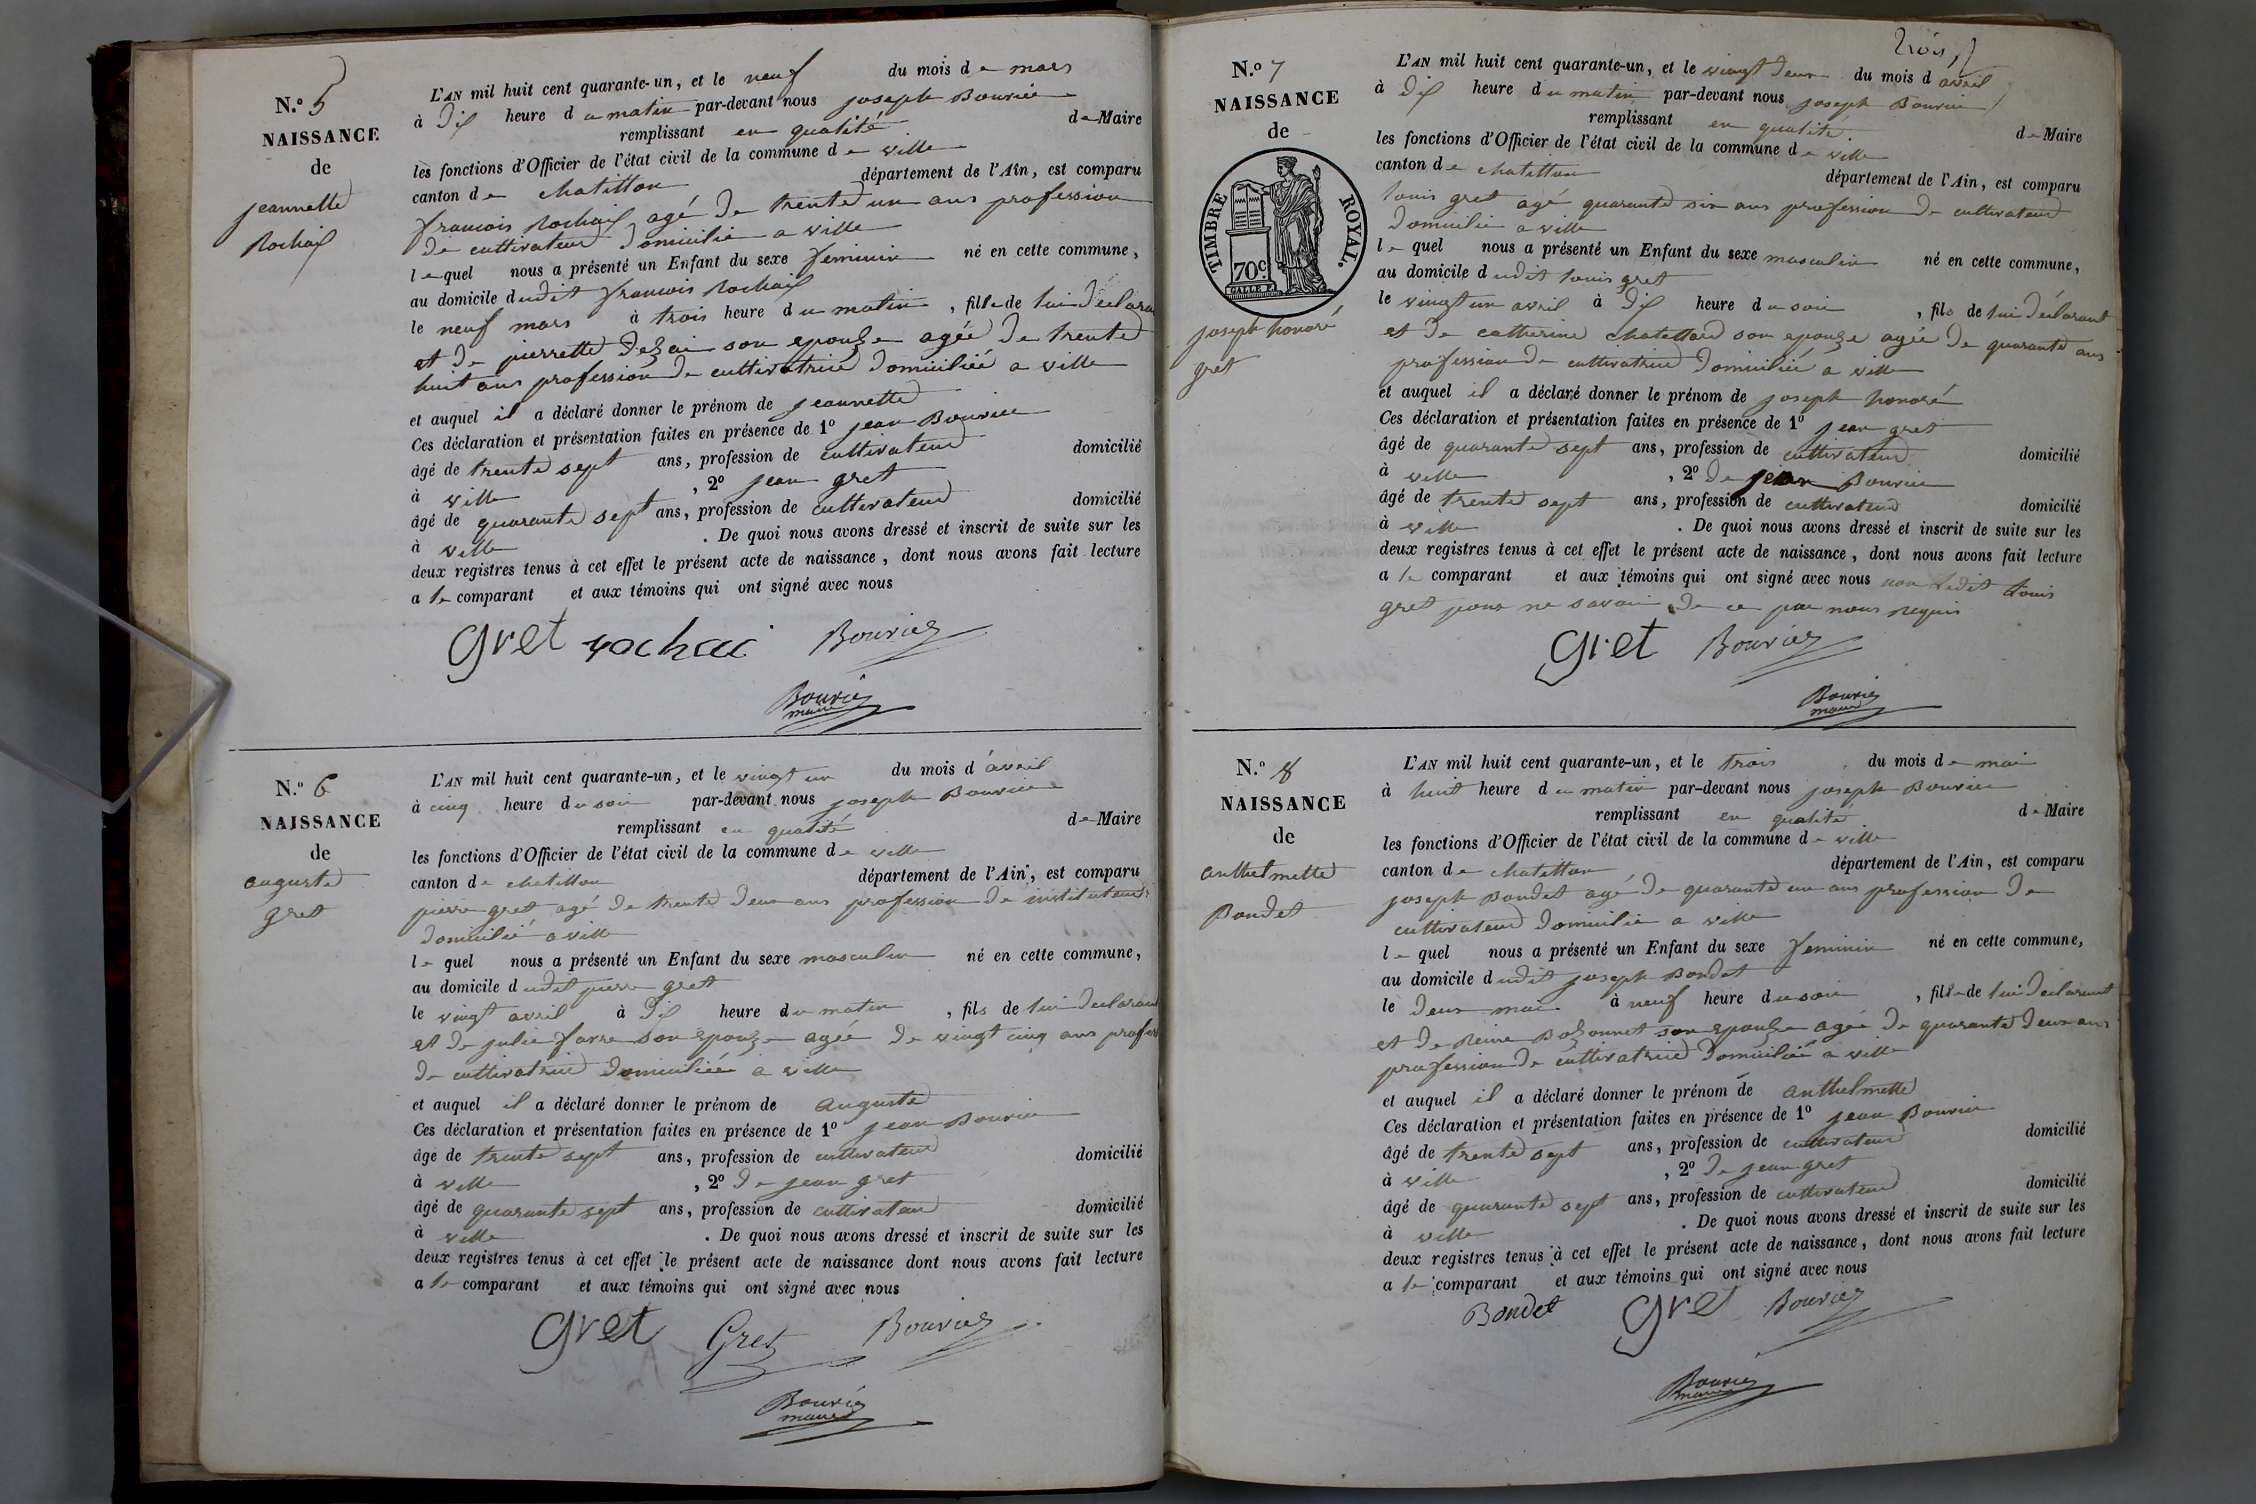 N.o 5
NAISSANCE
de
jeannette
Rochaix
L'AN mil huit cent quarante-un, et le neuf du mois de mars
à dix heure du matin par-devant nous joseph Bouvier
remplissant en qualité de Maire
les fonctions d'Officier de l'état civil de la commune de ville
canton de chatillon département de l'Ain, est comparu
francois Rochaix agé de trente un ans profession
de cultivateur domicilié a ville
lequel nous a présenté un Enfant du sexe feminin né en cette commune,
au domicile dudit francois Rochaix
le neuf mars à trois heure du matin, fille de lui declarant
et de pierrette son epouze agée de trente
huit ans profession de cultivatrice domiciliée a ville
et auquel il a déclaré donner le prénom de jeannette
Ces déclaration et présentation faites en présence de 1o jean Bouvier
âgé de trente sept ans, profession de cultivateur domicilié
à ville, 2o jean gret
âgé de quarante sept ans, profession de cultivateur domicilié
à ville. De quoi nous avons dressé et inscrit de suite sur les
deux registres tenus à cet effet le présent acte de naissance, dont nous avons fait lecture
a le comparant et aux témoins qui ont signé avec nous
gret rochai Bouvier
Bouvier
maire
N.o 6
NAISSANCE
de
auguste
gret
L'AN mil huit cent quarante-un, et le vingt un du mois d'avril
à cinq heure du soir par-devant nous joseph Bouvier
remplissant en qualité de Maire
les fonctions d'Officier de l'état civil de la commune de ville
canton de chatillon département de l'Ain, est comparu
pierre gret agé de trente deux ans profession de instituteur
domicilié a ville
lequel nous a présenté un Enfant du sexe masculin né en cette commune,
au domicile dudit pierre gret
le vingt avril à dix heure du matin, fils de lui declarant
et de julie favre son epouze agée de vingt cinq ans profess
de cultivatrice domiciliée a ville
et auquel il a déclaré donner le prénom de auguste
Ces déclaration et présentation faites en présence de 1o jean Bouvier
âgé de trente sept ans, profession de cultivateur domicilié
à ville, 2o de jean gret
âgé de quarante sept ans, profession de cultivateur domicilié
à ville. De quoi nous avons dressé et inscrit de suite sur les
deux registres tenus à cet effet le présent acte de naissance dont nous avons fait lecture
a le comparant et aux témoins qui ont signé avec nous
gret Gret Bouvier
Bouvier
maire
trois
N.o 7
NAISSANCE
de
TIMBRE ROYAL.
70c.
joseph honoré
gret
L'AN mil huit cent quarante-un, et le vingt deux du mois d'avril
à dix heure du matin par-devant nous joseph Bouvier
remplissant en qualité de Maire
les fonctions d'Officier de l'état civil de la commune de ville
canton de chatillon département de l'Ain, est comparu
louis gret agé quarante six ans profession de cultivateur
domicilié a ville
lequel nous a présenté un Enfant du sexe masculin né en cette commune,
au domicile dudit louis gret
le vingt un avril à dix heure du soir, fils de lui déclarant
et de catherine chatellard son epouze agée de quarante ans
profession de cultivatrice domiciliée a ville
et auquel il a déclaré donner le prénom de joseph honoré
Ces déclaration et présentation faites en présence de 1o jean gret
âgé de quarante sept ans, profession de cultivateur domicilié
à ville, 2o de jean Bouvier
âgé de trente sept ans, profession de cultivateur domicilié
à ville. De quoi nous avons dressé et inscrit de suite sur les
deux registres tenus à cet effet le présent acte de naissance, dont nous avons fait lecture
a le comparant et aux témoins qui ont signé avec nous non ledit louis
gret pour ne savoir de ce par nous requis
gret Bouvier
Bouvier
maire
N.o 8
NAISSANCE
de
anthelmette
Bondet
L'AN mil huit cent quarante-un, et le trois du mois de mai
à huit heure du matin par-devant nous joseph Bouvier
remplissant en qualité de Maire
les fonctions d'Officier de l'état civil de la commune de ville
canton de chatillon département de l'Ain, est comparu
joseph Bondet agé de quarante un ans profession de
cultivateur domicilié a ville
lequel nous a présenté un Enfant du sexe feminin né en cette commune,
au domicile dudit joseph Bondet
le deux mai à neuf heure du soir, fille de lui declarant
et de Reine Bozonnet son epouze agée de quarante deux ans
profession de cultivatrice domiciliée a ville
et auquel il a déclaré donner le prénom de anthelmette
Ces déclaration et présentation faites en présence de 1o jean Bouvier
âgé de trente sept ans, profession de cultivateur domicilié
à ville, 2o de jean gret
âgé de quarante sept ans, profession de cultivateur domicilié
à ville. De quoi nous avons dressé et inscrit de suite sur les
deux registres tenus à cet effet le présent acte de naissance, dont nous avons fait lecture
a le comparant et aux témoins qui ont signé avec nous
Bondet gret Bouvier
Bouvier
maire